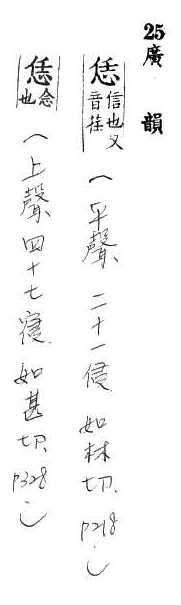 25 廣韻
恁 信也又音荏 (平聲 二十一侵 如林切. p218.)
恁 念也 (上聲 四十七寑 如甚切. p328.)